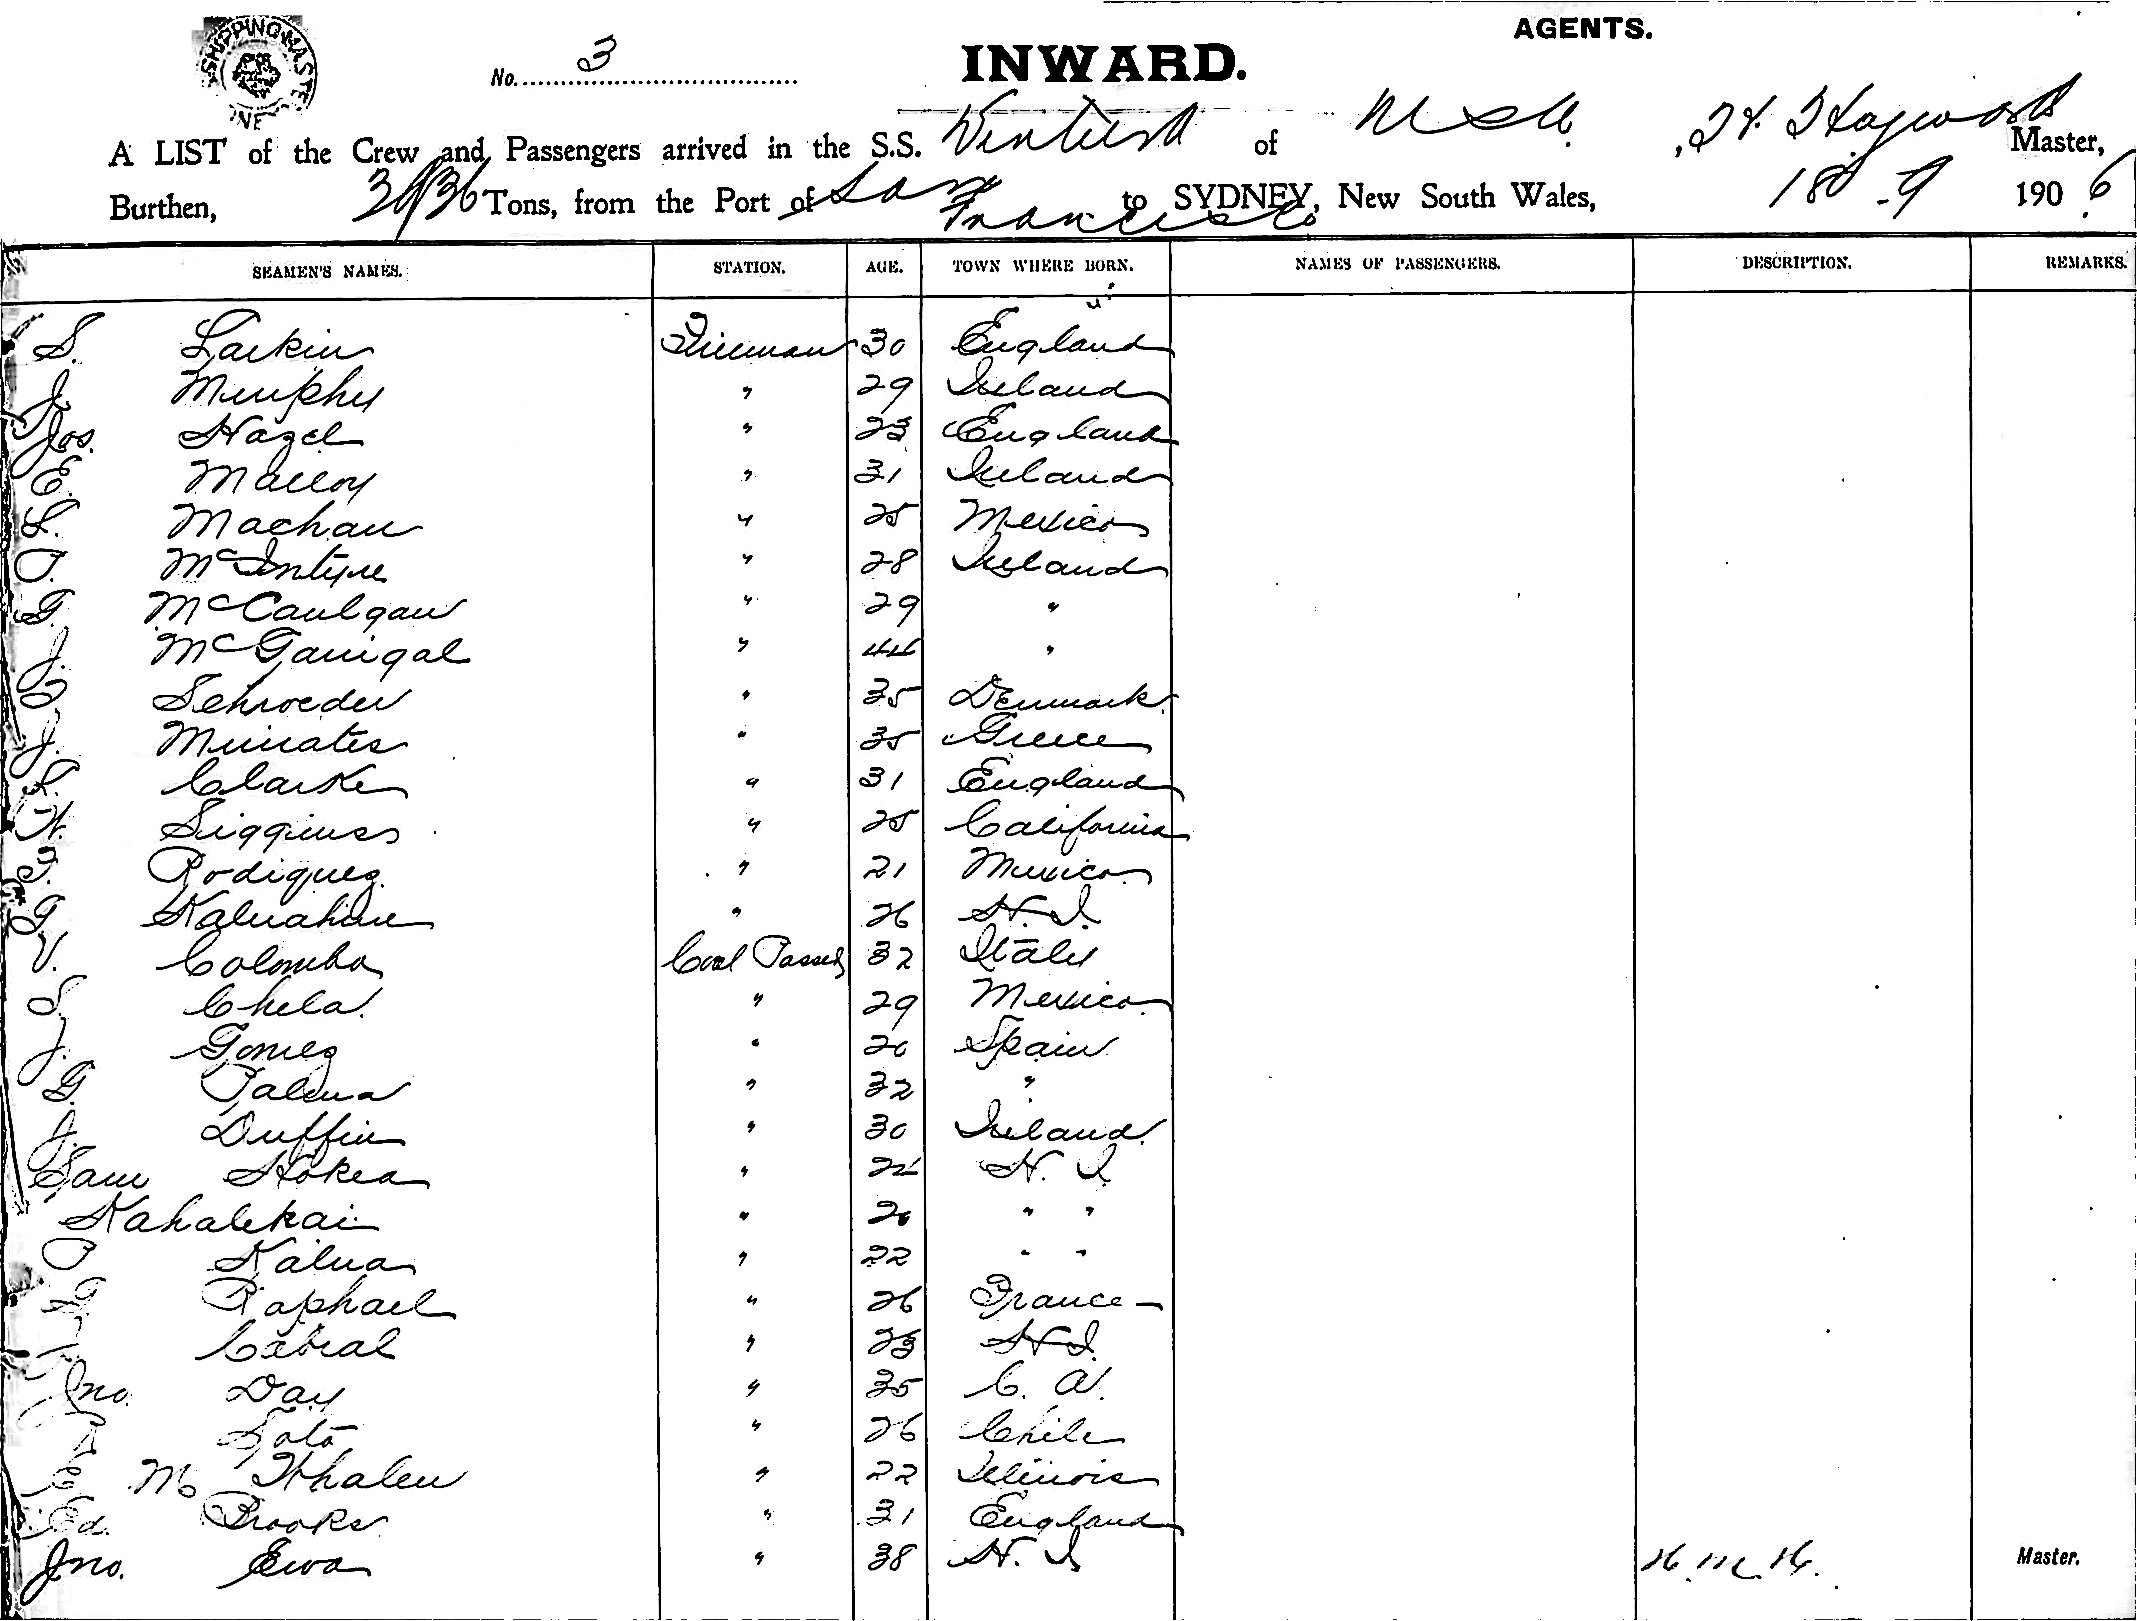 AGENTS.
SHIPPING MASTE
No. 3
INWARD.
A LIST of the Crew and Passengers arrived in the S.S. Ventura of Master,
Burthen, Tons, from the Port of San Francisco to SYDNEY, New South Wales, 18 9 1906
SEAMEN'S NAMES. STATION. AGE. TOWN WHERE BORN. NAMES OF PASSENGERS. DESCRIPTION. REMARKS.
S. Larkin Fireman 30 England
J. Murphy " 29 Ireland
Jos. Hazel " 23 England
E. Malloy " 31 Ireland
L. Machau " 25 Mexico
T. McIntyre " 28 Ireland
McCaulgan " 29 "
J. McGarrigal " 44 "
Schroeder " 35 Denmark
J. " 35 Greece
Clarke " 31 England
Siggins " 25 California
Rodiquez " 21 Mexico
" 26 H. I.
V. Colombo Coal Passer 32 Italy
S. Chela " 29 Mexico
J. Gomez " 20 Spain
G. Palma " 32 "
J. Duffin " 30 Ireland
Sam Hokea " 24 H. I.
Kahalekai " 20 " "
P Kalua " 22 " "
Raphael " 26 France
Cabral " 23 H. I.
Jno. Day " 35 C. A.
Soto " 26 Chile
E M Whalen " 22 Illinois
Ed. Brooks " 31 England
Jno. Ewa " 38 H. I. H. M. H. Master.